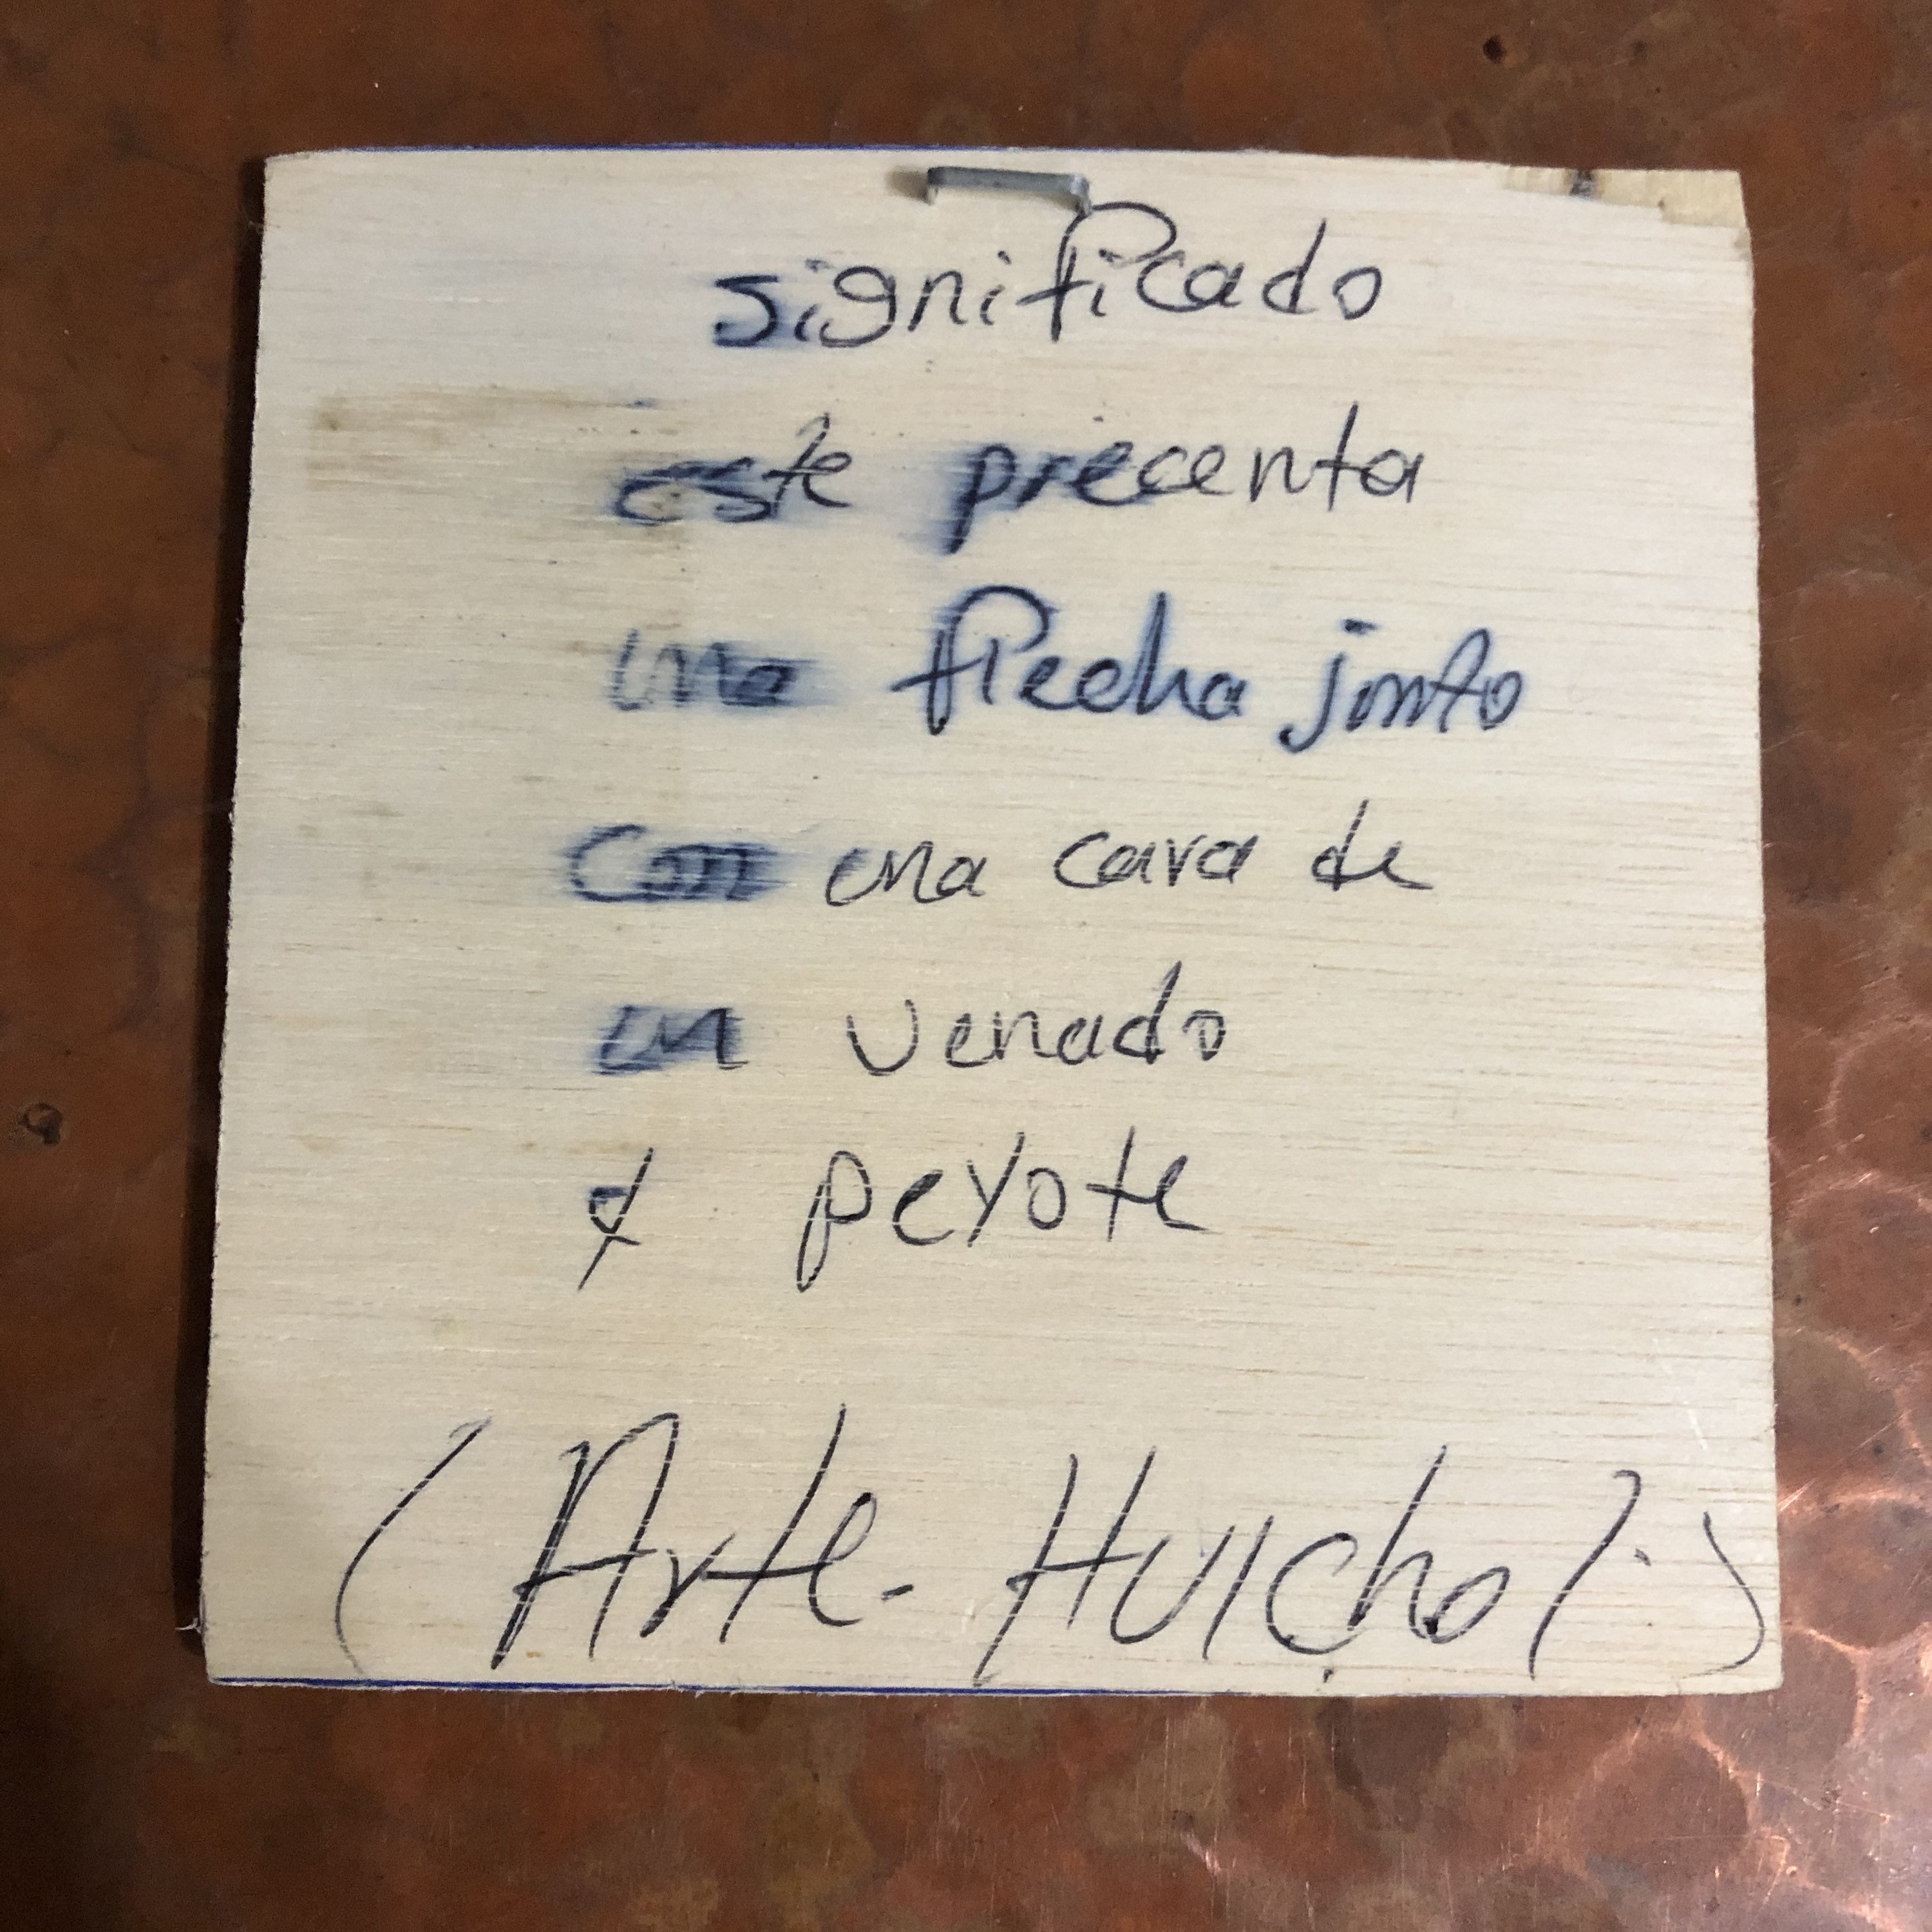 significado
este precenta
una flecha junto
con una cara de
un venado
y peyote
(Arte- Huichol.)